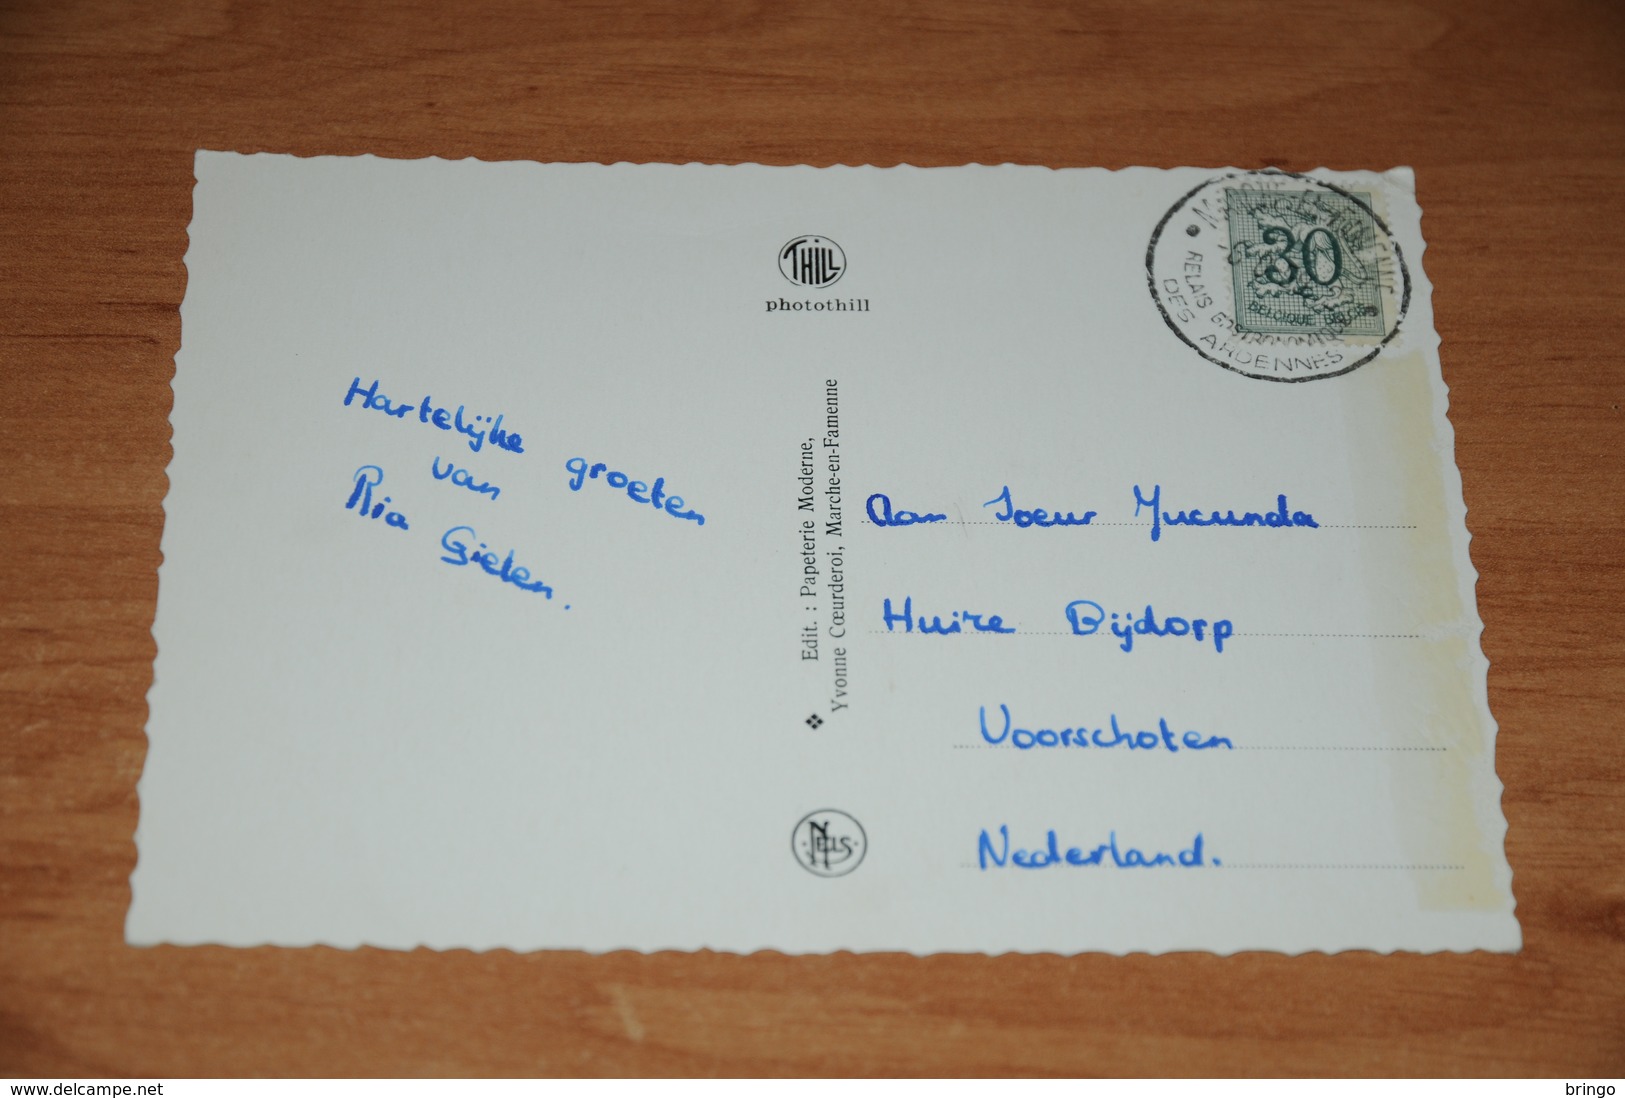 THILL
photothill
Hartelijke groeten
van
Ria Gielen.
Edit. : Papeterie Moderne,
Yvonne Cœurderoi, Marche-en-Famenne
NELS
30
BELGIQUE BELGIE
RELAIS GASTRONOMIQUE
DES ARDENNES
Aan Soeur Jucunda
Huize Bijdorp
Voorschoten
Nederland.
www.delcampe.net
bringo